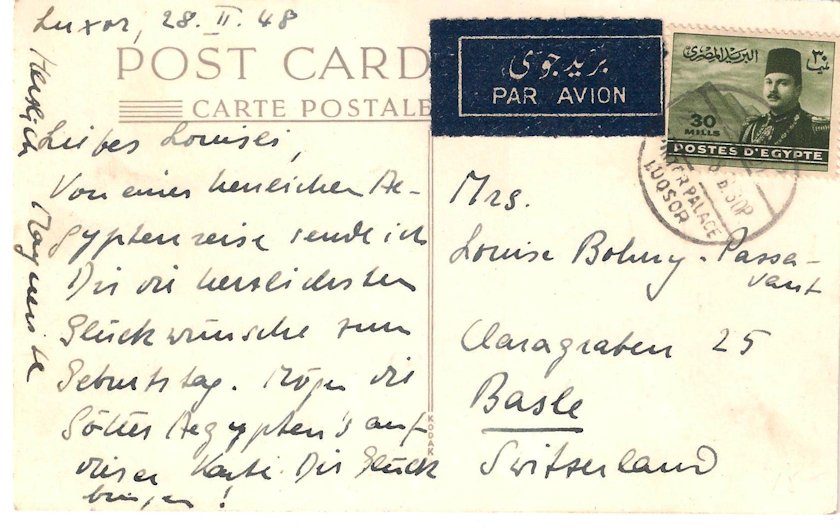 Luxor, 28. II. 48
POST CARD
CARTE POSTALE
Liebes Louiseli,
Von einer herrlichen Ae-
gyptenreise sende ich
Dir die herzlichsten
Glückwünsche zum
Geburtstag. Mögen die
Götter Aegypten's auf
dieser Karte Dir Glück
bringen!
Herzlich
KODAK
بريد جوى
PAR AVION
البريد المصرى
٣٠
30
MILLS
POSTES D'EGYPTE
PALACE
LUQSOR
Mrs.
Louise Bohny-Passa-
vant
Claragraben 25
Basle
Switzerland